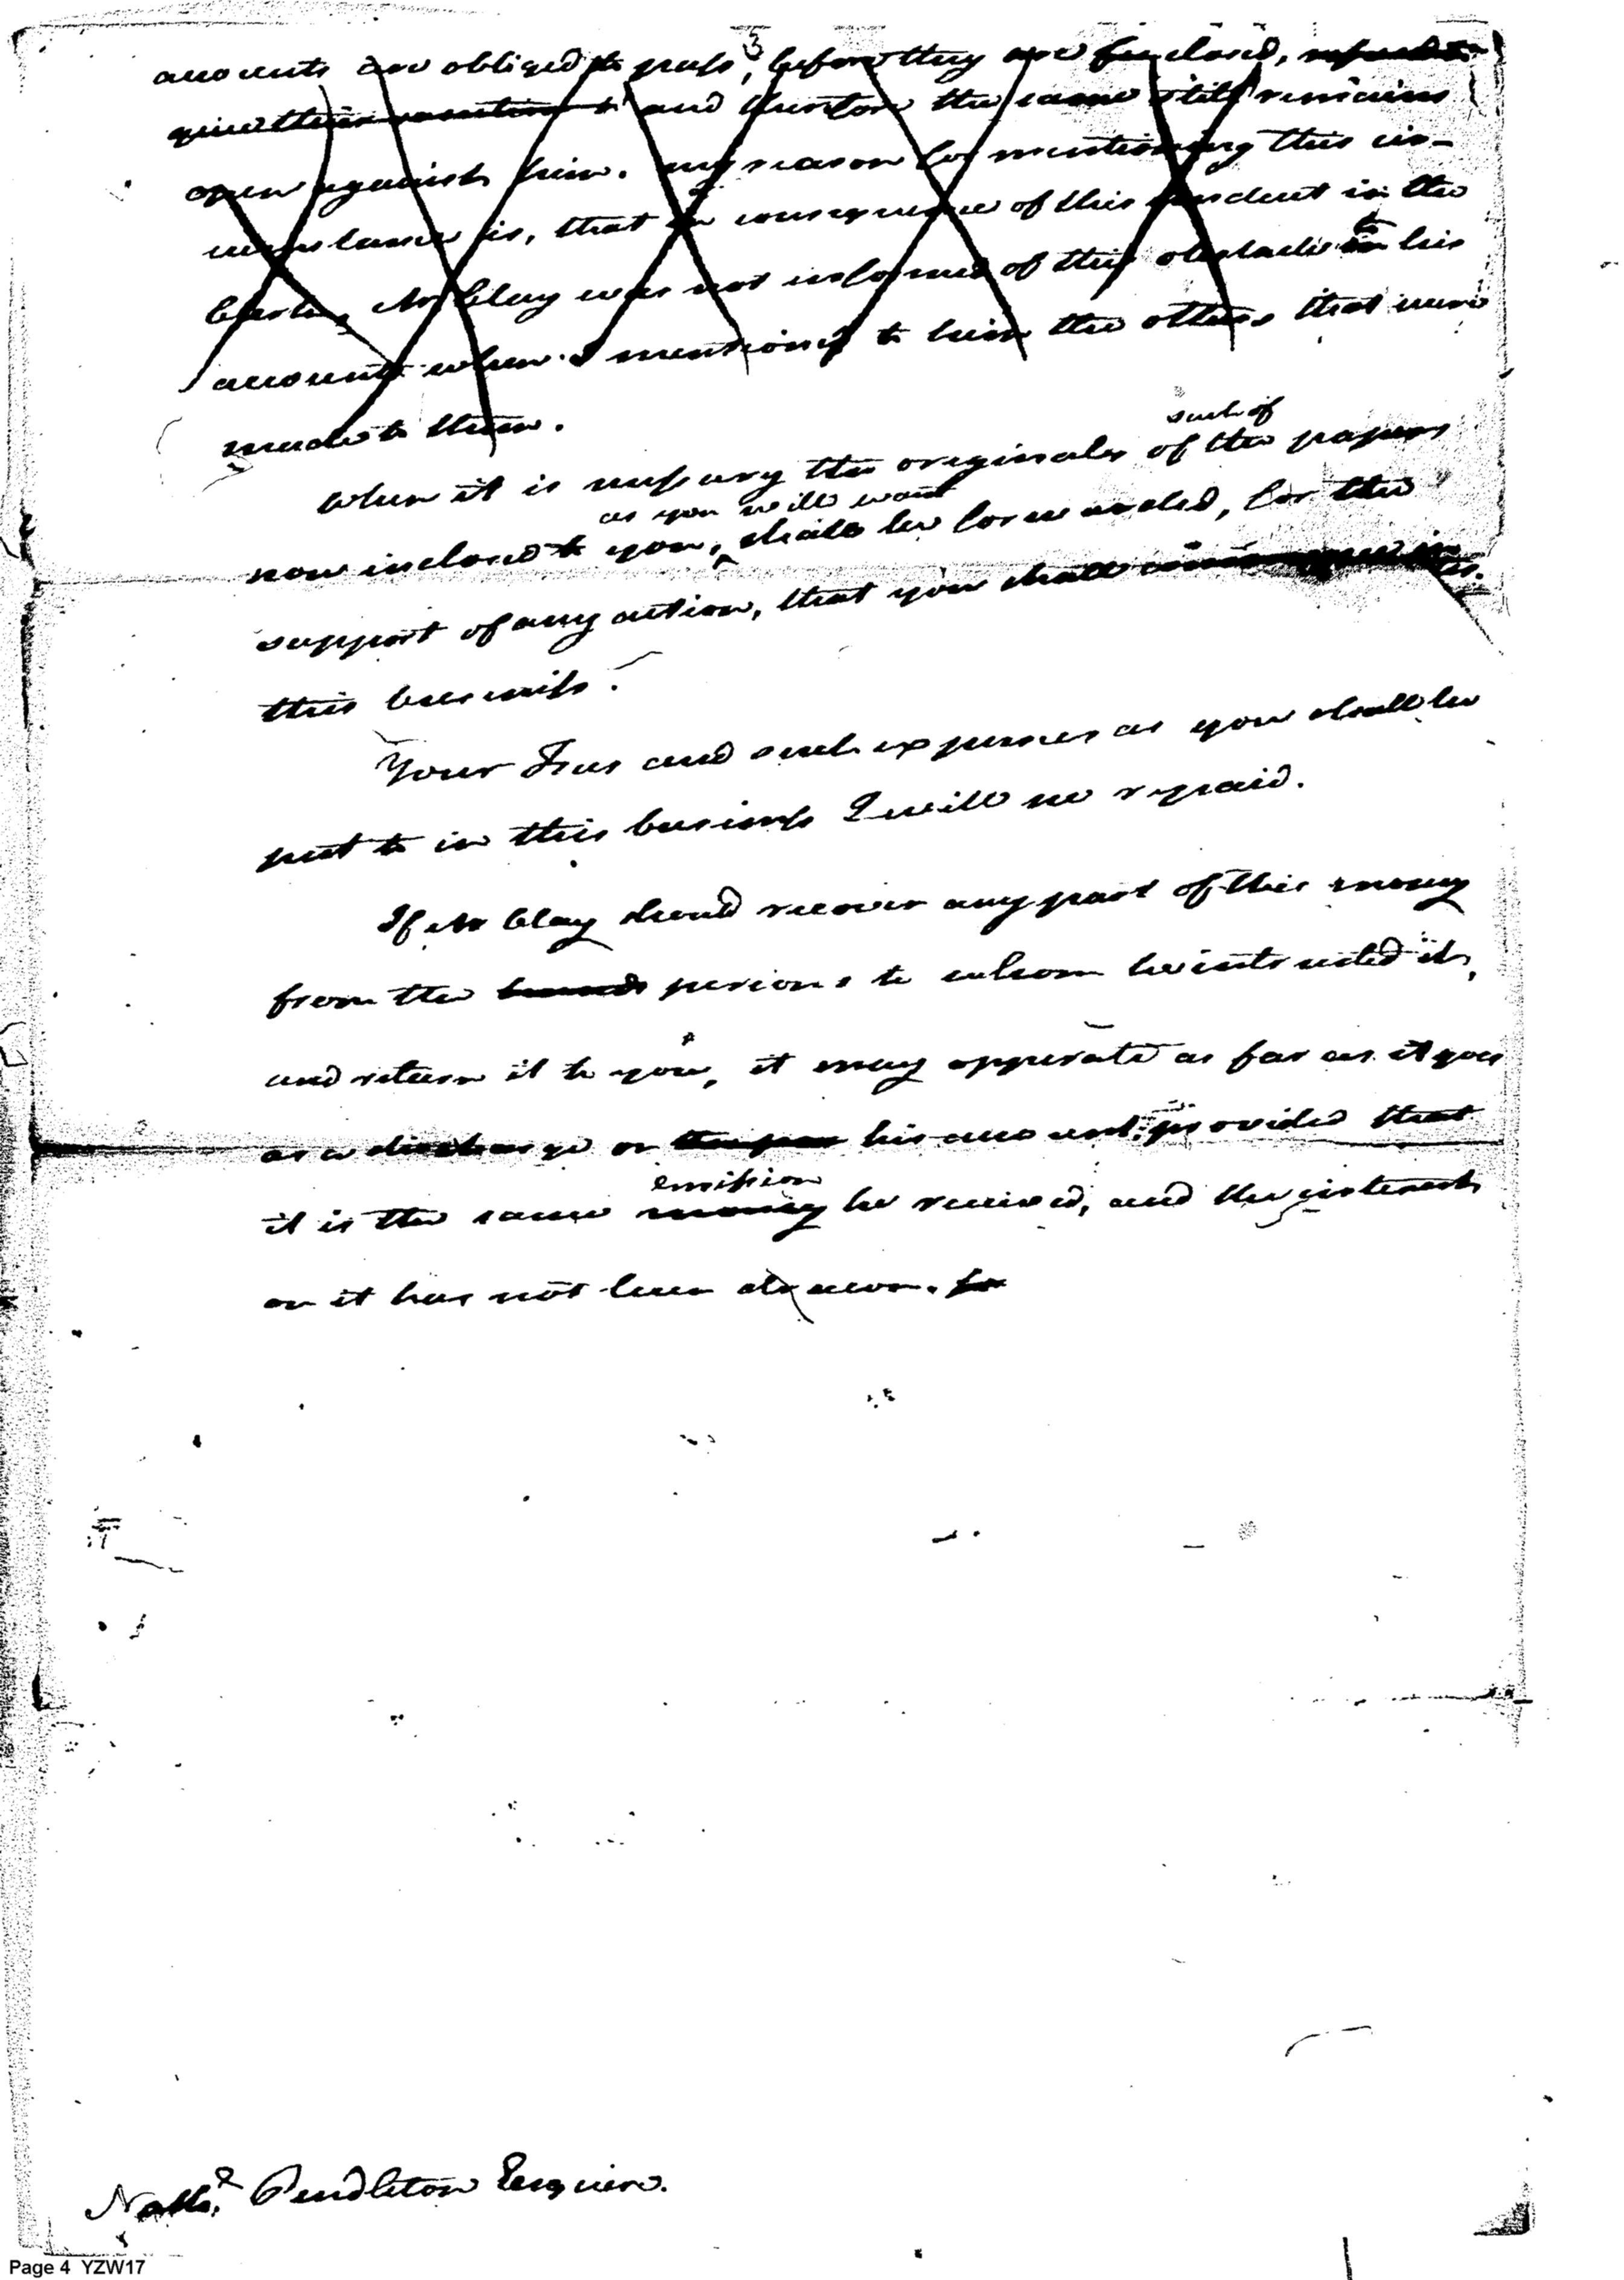 3
accounts are obliged to pass, before they are closed,
give their sanction to and therefore the same still remains
open against him. my reason for mentioning this cir-
cumstance is, that in consequence of this conduct in the
Clerks, Mr Clay was not informed of this obstacle to his
accounts when I mentioned to him the others that were
made to them.
such of
When it is nessary the originals of the papers
as you will want
now inclosed to you, shall be forwarded, for the
support of any action, that you shall
this business.
Your Fees and such expenses as you shall be
put to in this business I will see repaid.
If Mr Clay should recover any part of this money
from the hands persons to whom he intrusted it,
and return it to you, it may opperate as far as it goes
as a discharge on his account, provided that
emission
it is the same money he received, and the interest
on it has not been drawn. for
Nathl. Pendleton Esquire.
Page 4 YZW17